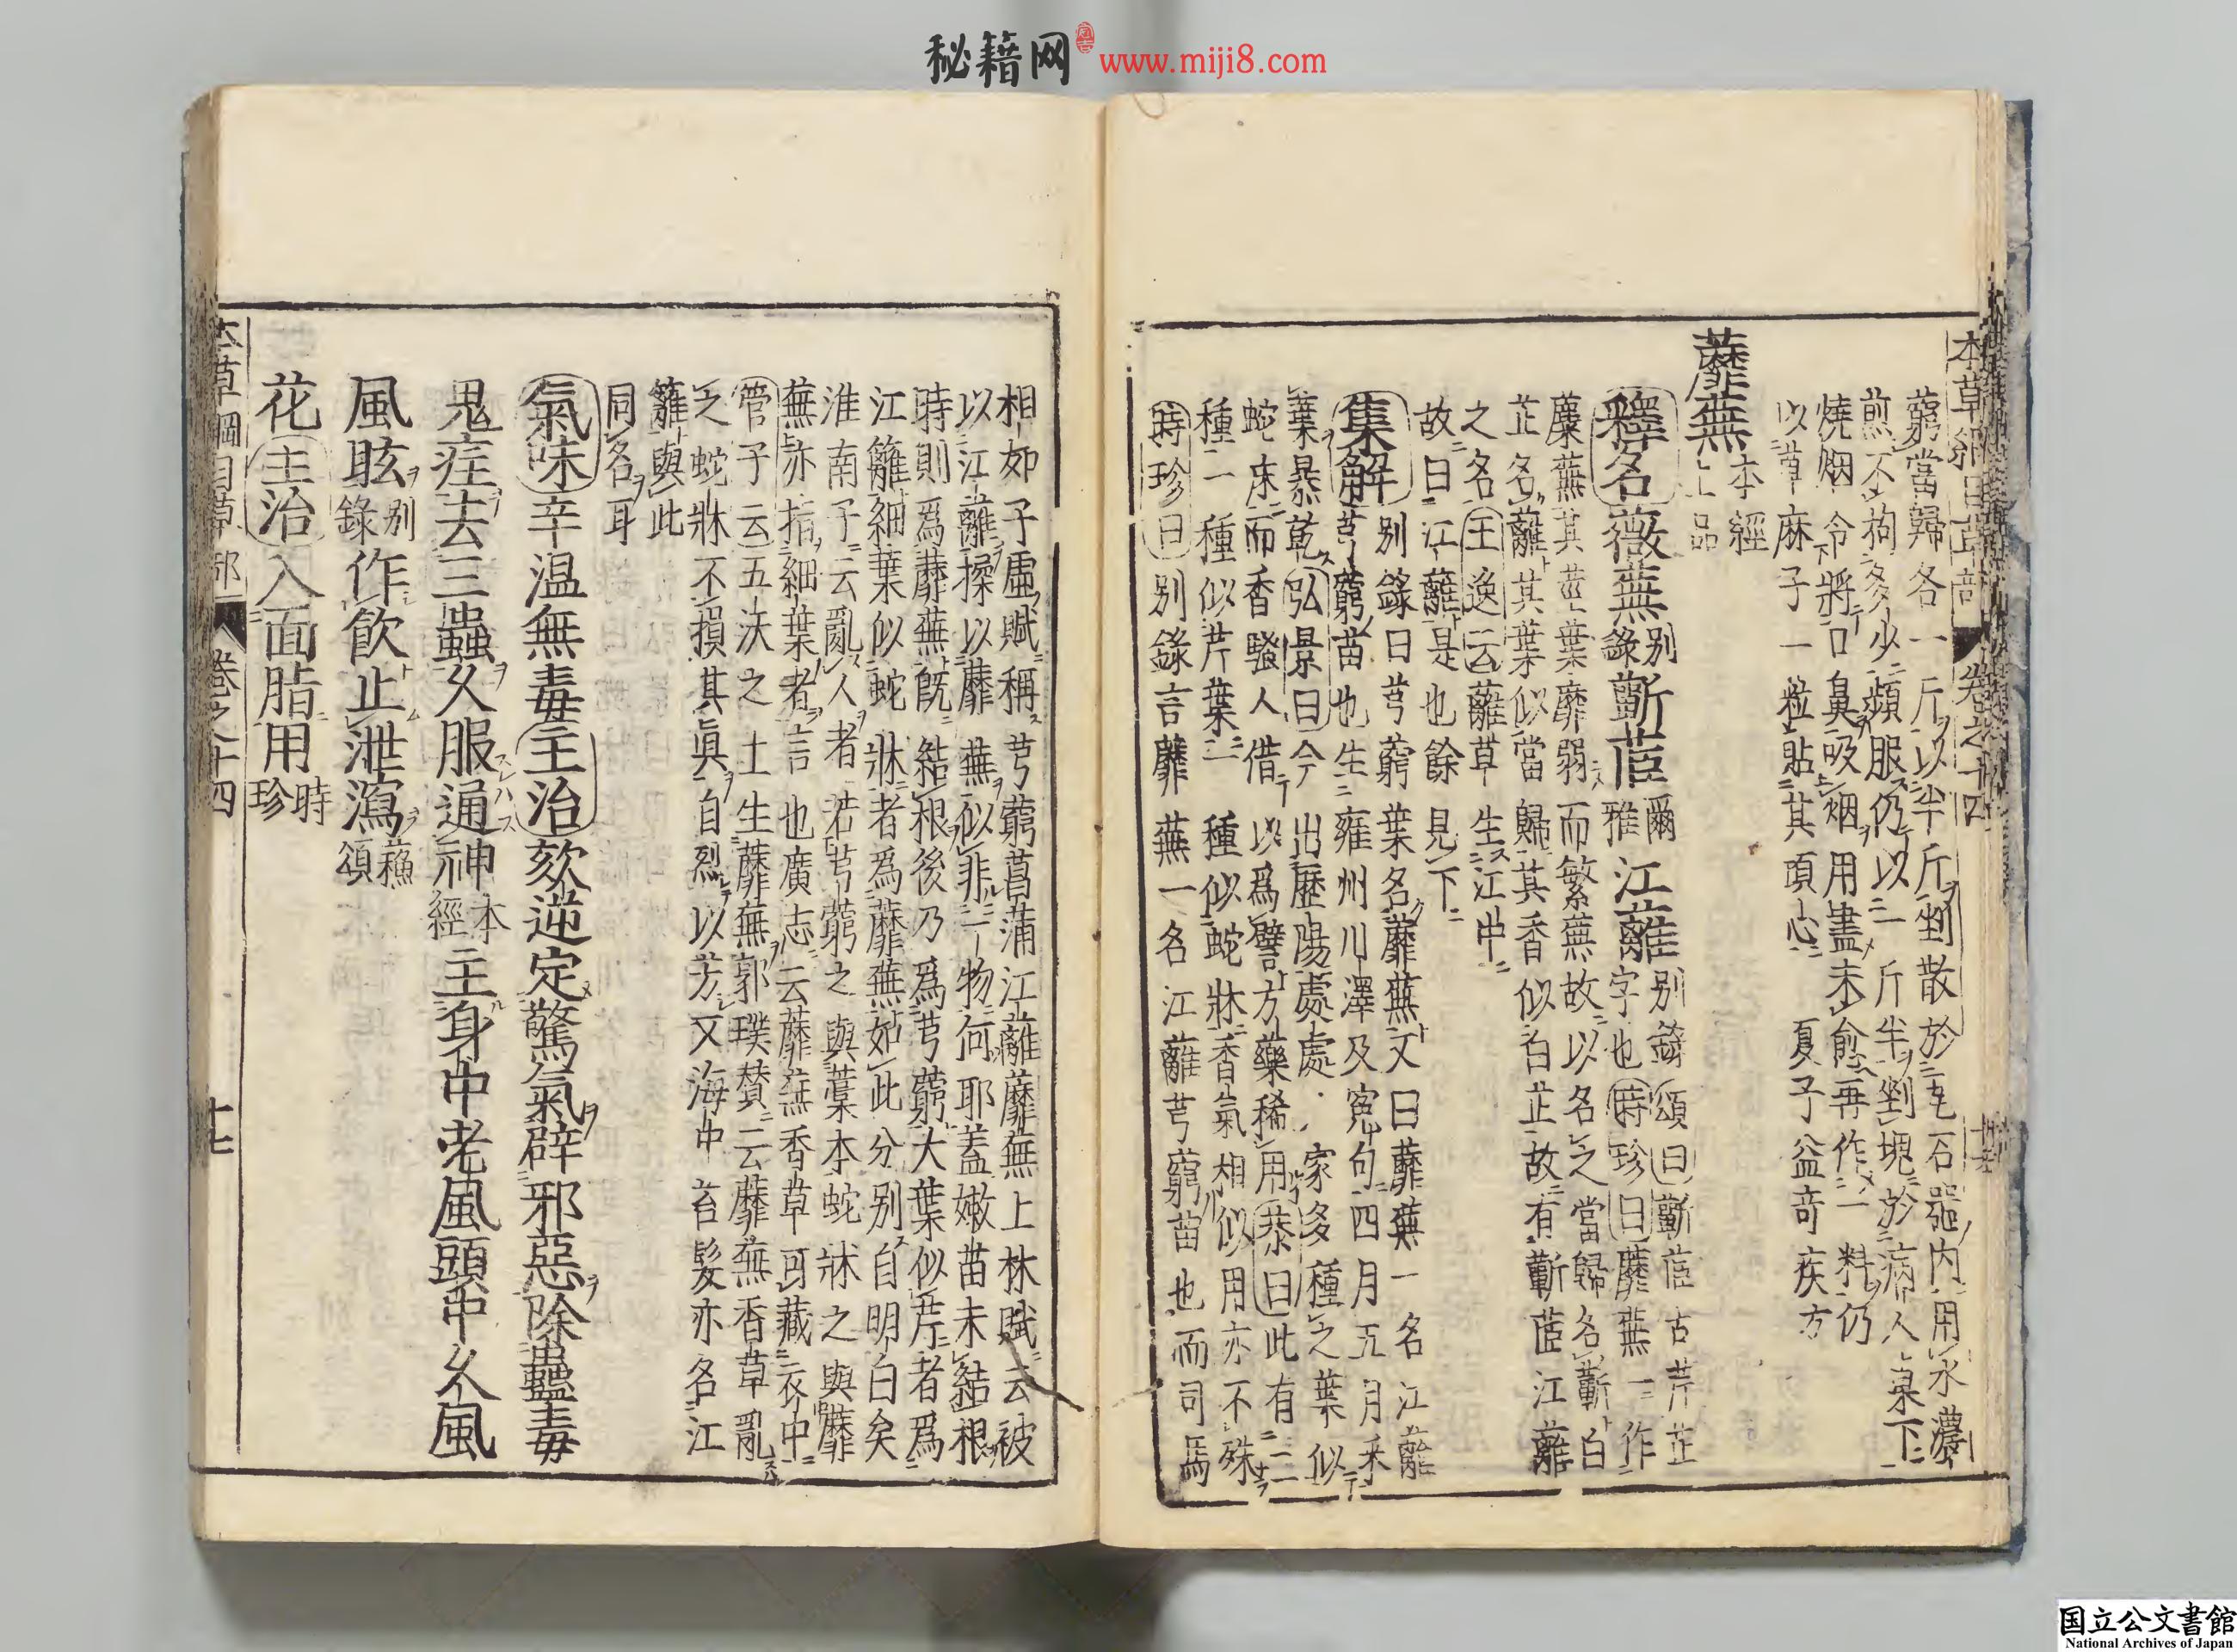 秘籍网 www.miji8.com
本草綱目草部 卷之十四
藭當歸各一斤以半斤剉散於瓦石器內用水濃
煎不拘多少頻服仍以一斤半剉塊於病人床下
燒烟令將口鼻吸烟用盡未愈再作一料仍
以草麻子一粒貼其頂心 夏子益奇疾方
蘼蕪 本經上品
釋名 薇蕪 別錄 蘄茝 爾雅 江蘺 別錄 頌曰蘄茝古芹芷
字也時珍曰蘼蕪一作
麋蕪其莖葉靡弱而繁蕪故以名之當歸名蘄白
芷名蘺其葉似當歸其香似白芷故有蘄茝江蘺
之名王逸云蘺草生江中
故曰江蘺是也餘見下
集解 別錄曰芎藭葉名蘼蕪又曰蘼蕪一名江蘺
芎藭苗也生雍州川澤及寃句四月五月采
葉暴乾弘景曰今出歷陽處處家多種之葉似
蛇床而香騷人借以爲譬方藥稀用恭曰此有二
種一種似芹葉一種似蛇牀香氣相似用亦不殊
時珍曰別錄言蘼蕪一名江蘺芎藭苗也而司馬
相如子虛賦稱芎藭菖蒲江蘺蘼蕪上林賦云被
以江蘺揉以蘼蕪似非一物何耶蓋嫩苗未結根
時則爲蘼蕪旣結根後乃爲芎藭大葉似芹者爲
江籬細葉似蛇牀者爲蘼蕪如此分別自明白矣
淮南子云亂人者若芎藭之與藁本蛇牀之與蘼
蕪亦指細葉者言也廣志云蘼蕪香草可藏衣中
管子云五沃之土生蘼蕪郭璞贊云蘼蕪香草亂
之蛇牀不損其眞自烈以芳又海中苔髮亦名江
籬與此
同名耳
氣味 辛温無毒 主治 欬逆定驚氣辟邪惡除蠱毒
鬼疰去三蟲久服通神 本經 主身中老風頭中久風
風眩 別錄 作飲止泄瀉 蘇頌
花 主治 入面脂用 時珍
本草綱目草部 卷之十四 十七
国立公文書館
National Archives of Japan